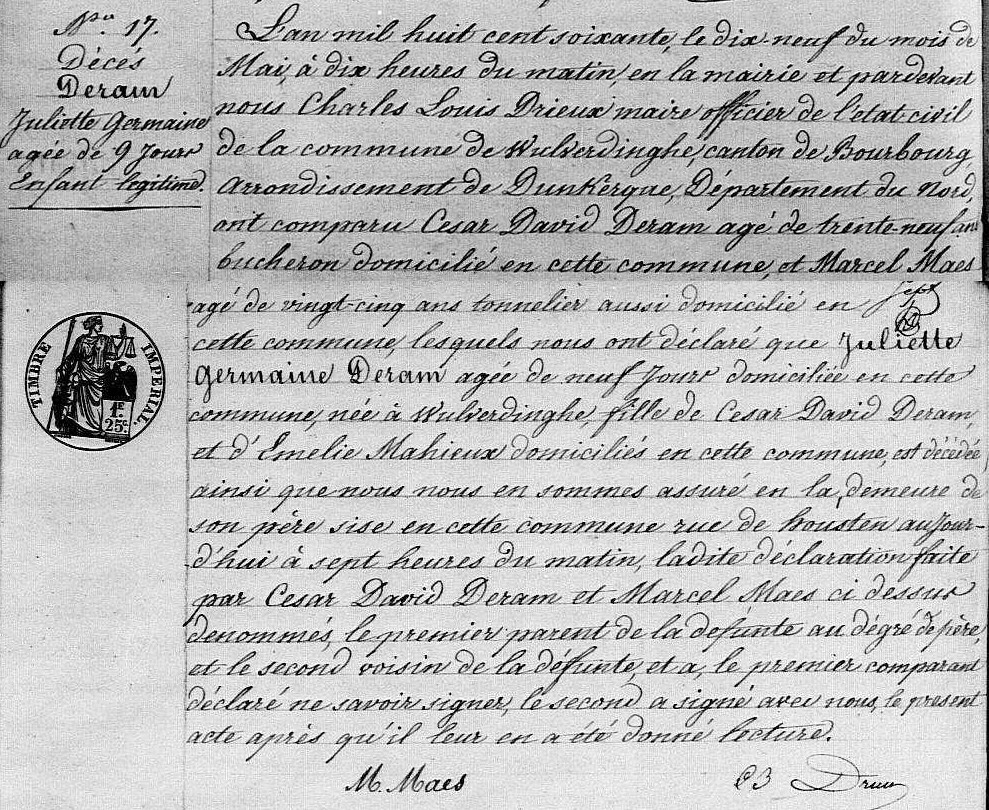 No. 17.
Décés
Deram
Juliette Germaine
agée de 9 Jours
Enfant legitime.
L'an mil huit cent soixante, le dix-neuf du mois de
Mai, à dix heures du matin, en la mairie et pardevant
nous Charles Louis Drieux maire officier de l'état civil
de la commune de Wulverdinghe, canton de Bourbourg
Arrondissement de Dunkerque, Département du Nord,
ont comparu Cesar David Deram agé de trente-neuf ans
bucheron domicilié en cette commune, et Marcel Maes
sept
agé de vingt-cinq ans tonnelier aussi domicilié en
cette commune, lesquels nous ont déclaré que Juliette
Germaine Deram agée de neuf Jours domiciliée en cette
commune, née à Wulverdinghe, fille de Cesar David Deram,
et d'Emelie Mahieux domiciliés en cette commune, est décédée,
ainsi que nous nous en sommes assuré en la demeure de
son père sise en cette commune rue de housten aujour-
d'hui à sept heures du matin, ladite déclaration faite
par Cesar David Deram et Marcel Maes ci dessus
denommés, le premier parent de la defunte au dégré de père,
et le second voisin de la défunte, et a, le premier comparant
déclaré ne savoir signer, le second a signé avec nous, le present
acte après qu'il leur en a été donné lecture.
TIMBRE IMPERIAL.
1F.
25c.
M. Maes